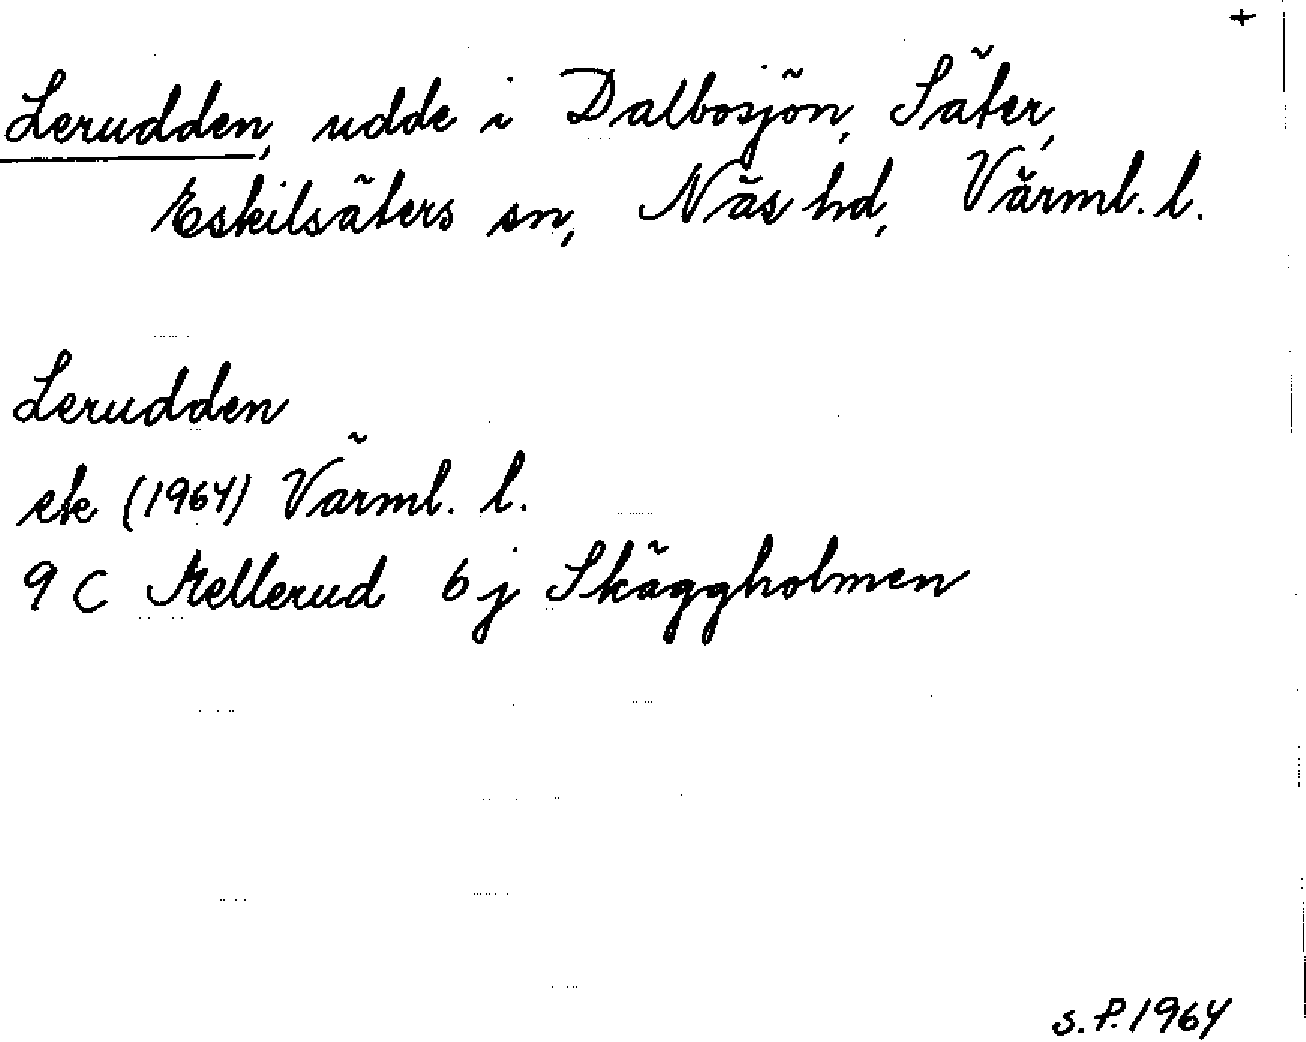 +
Lerudden, udde i Dalbosjön, Säter,
Eskilsäters sn, Näs hd, Värml. l.
Lerudden
ek (1964) Värml. l.
9 C Mellerud 6 j Skäggholmen
S.P. 1964